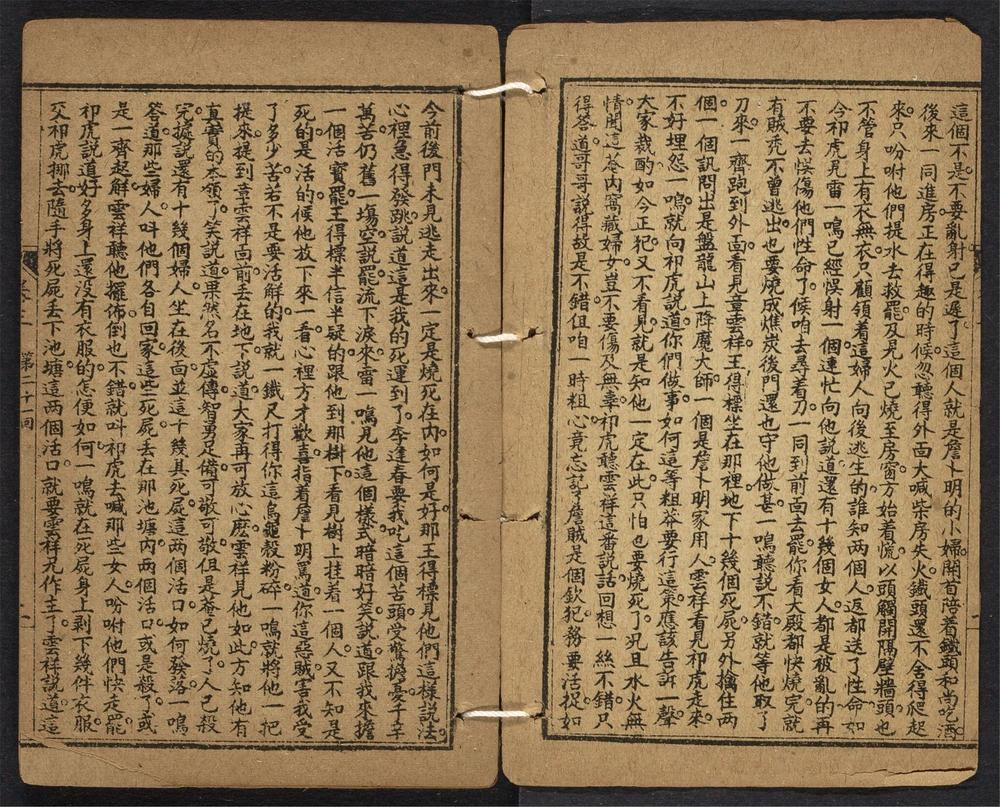 這個不是。不要亂射。已是遲了。這個人就是詹卜明的小婦。開首陪着鐵頭和尚吃酒。
後來一同進房。正在得趣的時候。忽聽得外面大喊柴房失火。鐵頭還不舍得爬起
來。只吩咐他們提水去救罷。及見火已燒至房窗。方始着慌。以頭觸開隔壁牆頭。也
不管身上有衣無衣。只顧領着這婦人向後逃生的。誰知兩個人返都送了性命。如
今祁虎見雷一鳴已經誤射一個。連忙向他說道。還有十幾個女人。都是被亂的。再
不要去悞傷他們性命了。候咱去尋着刀。一同到前面去罷。你看大殿都快燒完。就
有賊禿不曾逃出。也要燒成燋炭。後門還也守他做甚。一鳴聽說不錯。就等他取了
刀來。一齊跑到外面。看見童雲祥王得標坐在那裡。地下十幾個死屍。另外擒住兩
個。一個訊問出是盤龍山上降魔大師。一個是詹卜明家用人。雲祥看見祁虎走來。
不好埋怨一鳴。就向祁虎說道。你們做事。如何這等粗莽。要行這策。應該告訴一聲。
大家裁酌。如今正犯又不看見。就是知他一定在此。只怕也要燒死了。況且水火無
情。聞這菴內窩藏婦女。豈不要傷及無辜。祁虎聽雲祥這番說話。回想一絲不錯。只
得答道。哥哥說得故是不錯。但咱一時粗心。竟忘記了詹賊是個欽犯。務要活捉。如
今前後門未見逃走出來。一定是燒死在內。如何是好。那王得標見他們這樣說法。
心裡急得發跳。說道。這是我的死運到了。李逢春要我吃這個苦頭。受驚擔憂。千辛
萬苦。仍舊一場空。說罷。流下淚來。雷一鳴見他這個樣式。暗暗好笑。說道。跟我來。擔
一個活寶罷。王得標半信半疑的。跟他到那樹下。看見樹上挂着一個人。又不知是
死的是活的。候他放下來一看。心裡方才歡喜。指着詹卜明罵道。你這惡賊。害我受
了多少苦。若不是要活解的。我就一鐵尺。打得你這烏龜殼粉碎。一鳴就將他一把
提來。提到童雲祥面前。丢在地下。說道。大家再可放心麽。雲祥見他如此。方知他有
真實的本領。了笑說道。果然名不虛傳。智勇足備。可敬可敬。但是菴已燒了。人已殺
完。據說還有十幾個婦人坐在後面。並這十幾具死屍。這兩個活口。如何發落。一鳴
答道。那些婦人。叫他們各自回家。這些死屍。丢在那池塘內。兩個活口。或是殺了。或
是一齊起解。雲祥聽他擺佈。倒也不錯。就叫祁虎去喊那些女人。吩咐他們快走罷。
祁虎說道。好多身上還沒有衣服的。怎便如何。一鳴就在死屍身上剥下幾件衣服。
交祁虎挪去。隨手將死屍丢下池塘。這兩個活口。就要雲祥兄作主了。雲祥說道。這
第二十一回